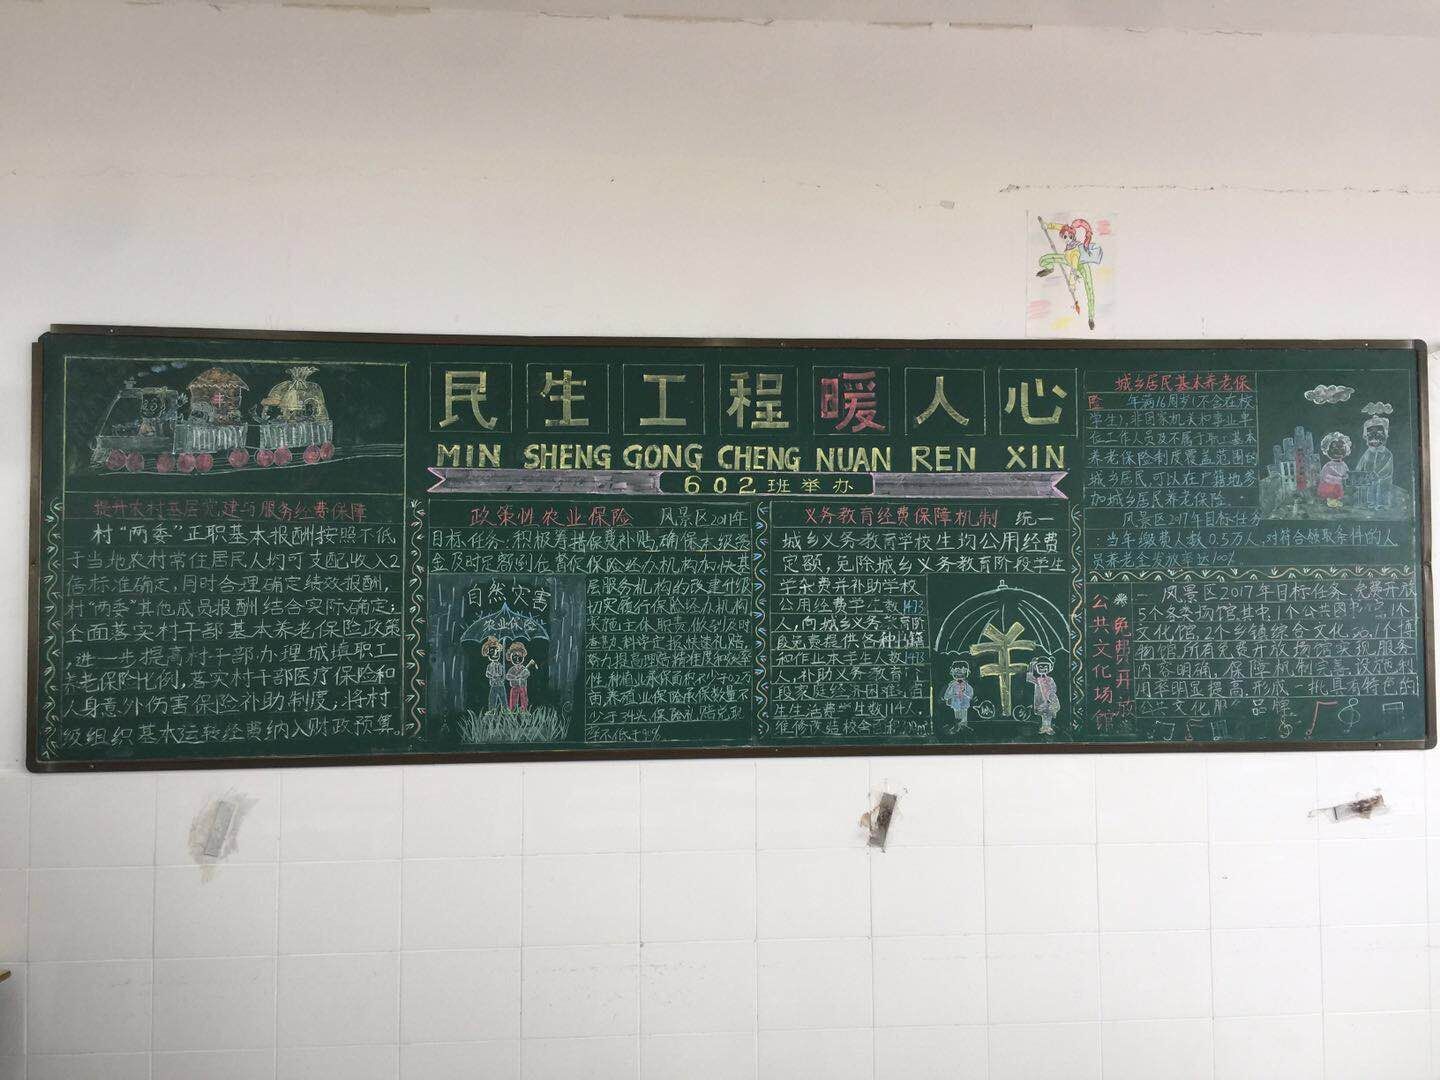 民生工程暖人心
MIN SHENG GONG CHENG NUAN REN XIN
602班举办
提升农村基层党建与服务经费保障
村“两委”正职基本报酬按照不低
于当地农村常住居民人均可支配收入2
倍标准确定,同时合理确定绩效报酬,
村“两委”其他成员报酬结合实际确定;
全面落实村干部基本养老保险政策
,进一步提高村干部办理城填职工
养老保险比例,落实村干部医疗保险和
人身意外伤害保险补助制度,将村
级组织基本运转经费纳入财政预算.
政策性农业保险 风景区2017年
目标任务:积极筹措保费补贴,确保
金及时足额到位督促保险经办机构加快基
层服务机构的改建
切实履行保险经办机构
实施主体职责做到及时
查勘,科学定报,快速礼赔,
努力提高理赔精准度和效率
自然灾害
农业保险
义务教育经费保障机制 统一
城乡义务教育学校生均公用经费
定额,免除城乡义务教育阶段学生
学杂费并补助学校
公用经费学生数1473
人,向城乡义务教育阶
段免费提供各种
和作业本学生人数1473
人,补助义务教育
段家庭经济困难
生生活费学生数114人
羊
城乡居民基本养老保
险 年满16周岁(不含在校
学生),非国家机关和事业单
位工作人员及不属于职工基本
养老保险制度覆盖范围的
城乡居民,可以在户籍地参
加城乡居民养老保险.
风景区2017年目标任务
:当年缴费人数0.5万人,对符合领取条件的人
员养老金发放率达100%
公共文化场馆
免费开放
一、风景区2017年目标任务、免费开放
5个各类场馆其中:1个公共图书馆,1个
文化馆,2个乡镇综合文化站,1个博
物馆,所有免费开放场馆实现服务
内容明确,保障机制完善,设施利
用率明显提高,形成一批具有特色的
公共文化服务品牌